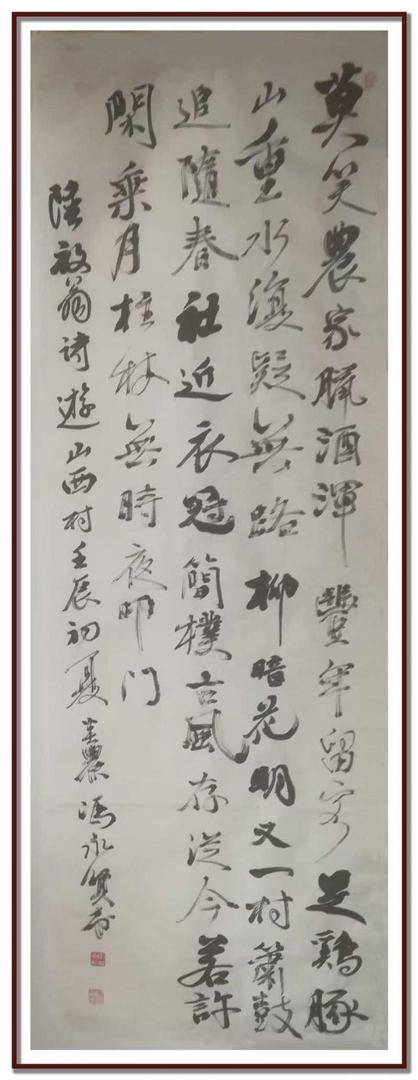 莫笑農家臘酒渾豐年留客足鷄豚
山重水復疑無路柳暗花明又一村簫鼓
追隨春社近衣冠簡樸古風存從今若許
閑乘月柱杖無時夜叩门
陸放翁詩遊山西村壬辰初夏農冯永贤書